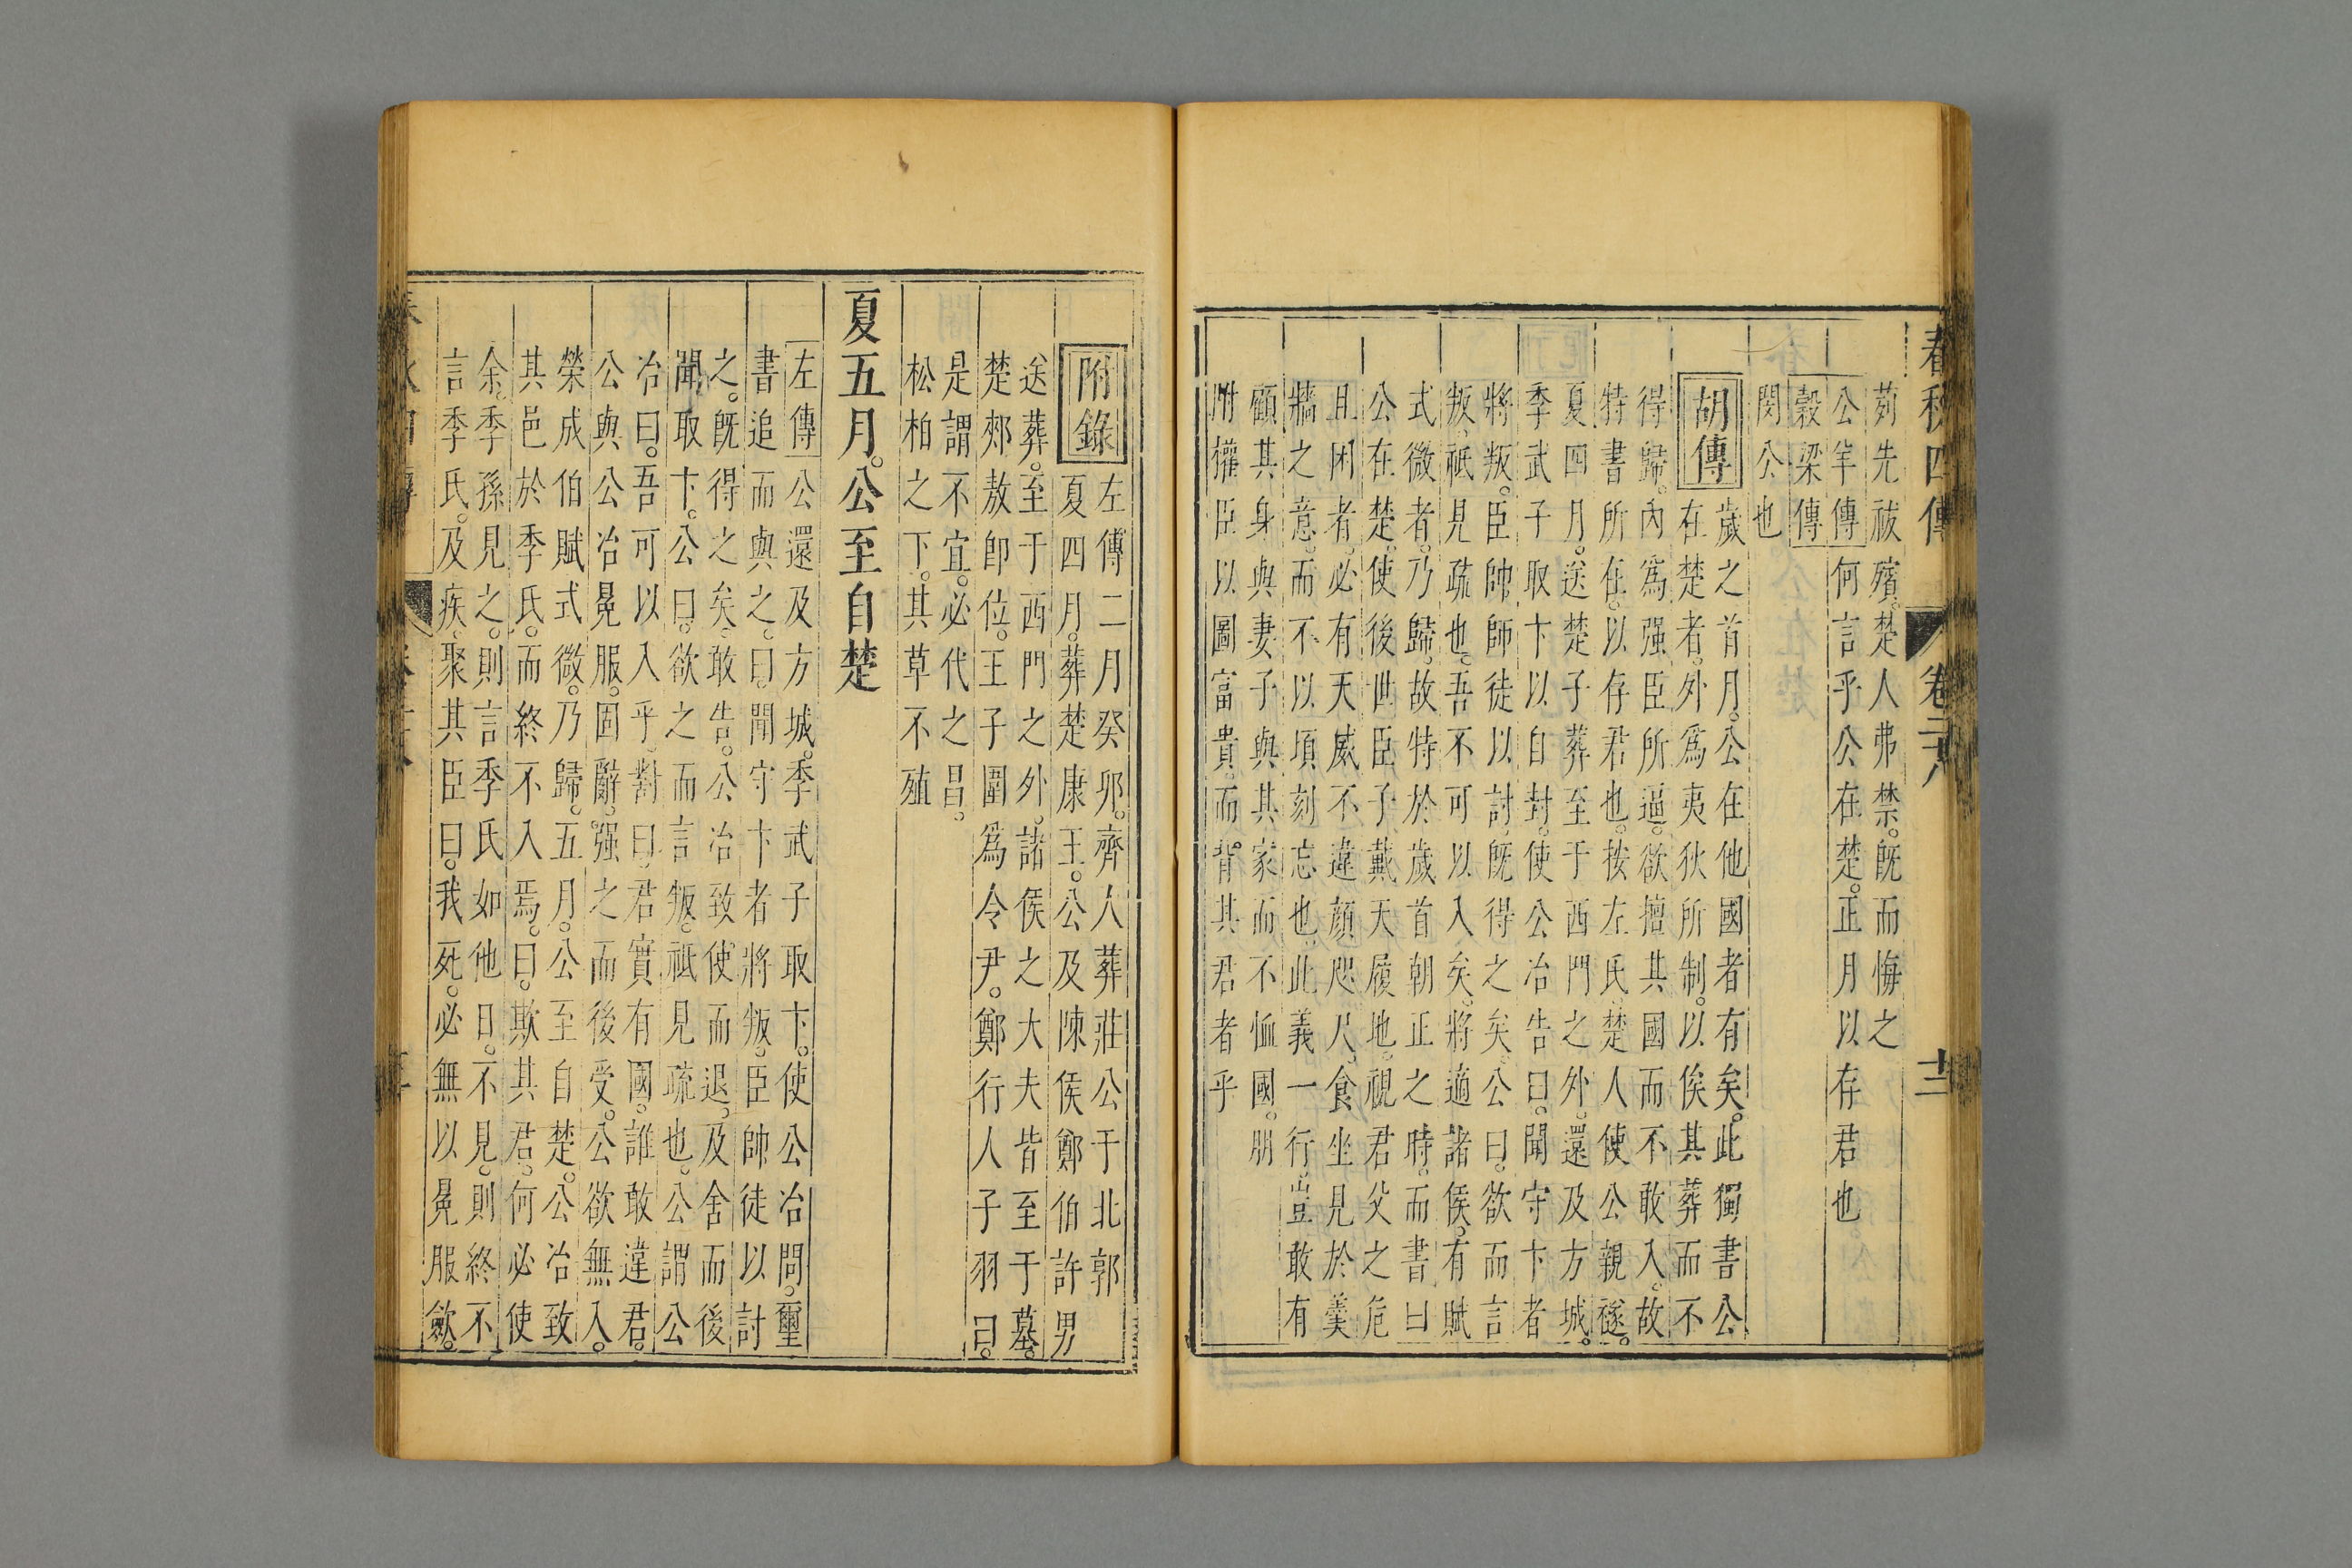 春秋四傳 卷二十八 十二
茢先祓殯。楚人弗禁。旣而悔之
公羊傳何言乎公在楚。正月以存君也
穀梁傳
閔公也
胡傳
歲之首月。公在他國者有矣。此獨書公
在楚者。外爲夷狄所制。以俟其葬而不
得歸。內爲强臣所逼。欲擅其國而不敢入。故
特書所在。以存君也。按左氏。楚人使公親襚。
夏四月。送楚子葬至于西門之外。還及方城。
季武子取卞以自封。使公冶告曰。聞守卞者
將叛。臣帥師徒以討。旣得之矣。公曰。欲而言
叛。祗見疏也。吾不可以入矣。將適諸侯。有賦
式微者。乃歸。故特於歲首朝正之時。而書曰
公在楚。使後世臣子戴天履地。視君父之危
且困者。必有天威不違顔咫尺。食坐見於羹
牆之意。而不以頃刻忘也。此義一行。豈敢有
顧其身與妻子與其家而不恤國。朋
附權臣以圖富貴。而背其君者乎
附錄
左傳二月癸卯。齊人葬莊公于北郭
夏四月。葬楚康王。公及陳侯鄭伯許男
送葬。至于西門之外。諸侯之大夫皆至于墓。
楚郟敖卽位。王子圍爲令尹。鄭行人子羽曰。
是謂不宜。必代之昌。
松柏之下。其草不殖
夏五月。公至自楚
左傳公還及方城。季武子取卞。使公冶問。璽
書追而與之。曰。聞守卞者將叛。臣帥徒以討
之。旣得之矣。敢告。公冶致使而退。及舍而後
聞取卞。公曰。欲之而言叛。祗見疏也。公謂公
冶曰。吾可以入乎。對曰。君實有國。誰敢違君。
公與公冶冕服。固辭。强之而後受。公欲無入。
榮成伯賦式微。乃歸。五月。公至自楚。公冶致
其邑於季氏。而終不入焉。曰。欺其君。何必使
余。季孫見之。則言季氏如他日。不見。則終不
言季氏。及疾。聚其臣曰。我死。必無以冕服斂。